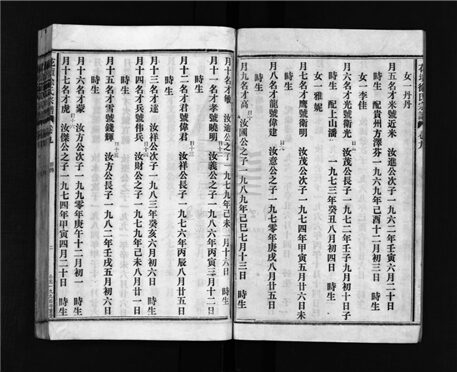 女一丹丹
月五名才米號近米 汝進公次子一九六二年壬寅六月二十日
時生 配貴州方澤芬一九六九年己酉十二月初三日 時生
女一李佳
月六名才光號衛光 汝茂公長子一九七二年壬子九月初十日子
時生 配上山潘 一九七三年癸丑八月初四日 時生
女一雅妮
月七名才鷹號衛明 汝茂公次子一九七四年甲寅五月廿六日未
時生
月八名才龍號偉建 汝意公之子一九七零年庚戌八月廿五日
時生
月九名才高 汝國公之子一九八九年己巳七月十三日 時生
月十名才敏 汝迪公之子一九七九年己未二月十六日 時生
月十一名才孝號曉明 汝義公之子一九七六年丙寅三月十二日
時生
月十二名才君號偉君 汝祥公長子一九七六年丙辰八月廿五日
月十三名才達 汝祥公次子一九八三年癸亥六月初六日 時生
月十四名才兵號伟兵 汝財公之子一九七九年己未八月廿一日
時生
月十五名才雪號錢輝 汝方公長子一九八二年壬戌五月初六日
時生
月十六名才豪 汝方公次子一九九零年庚午十二月初一 時生
月十七名才虎 汝傲公之子一九七四年甲寅四月二十日 時生